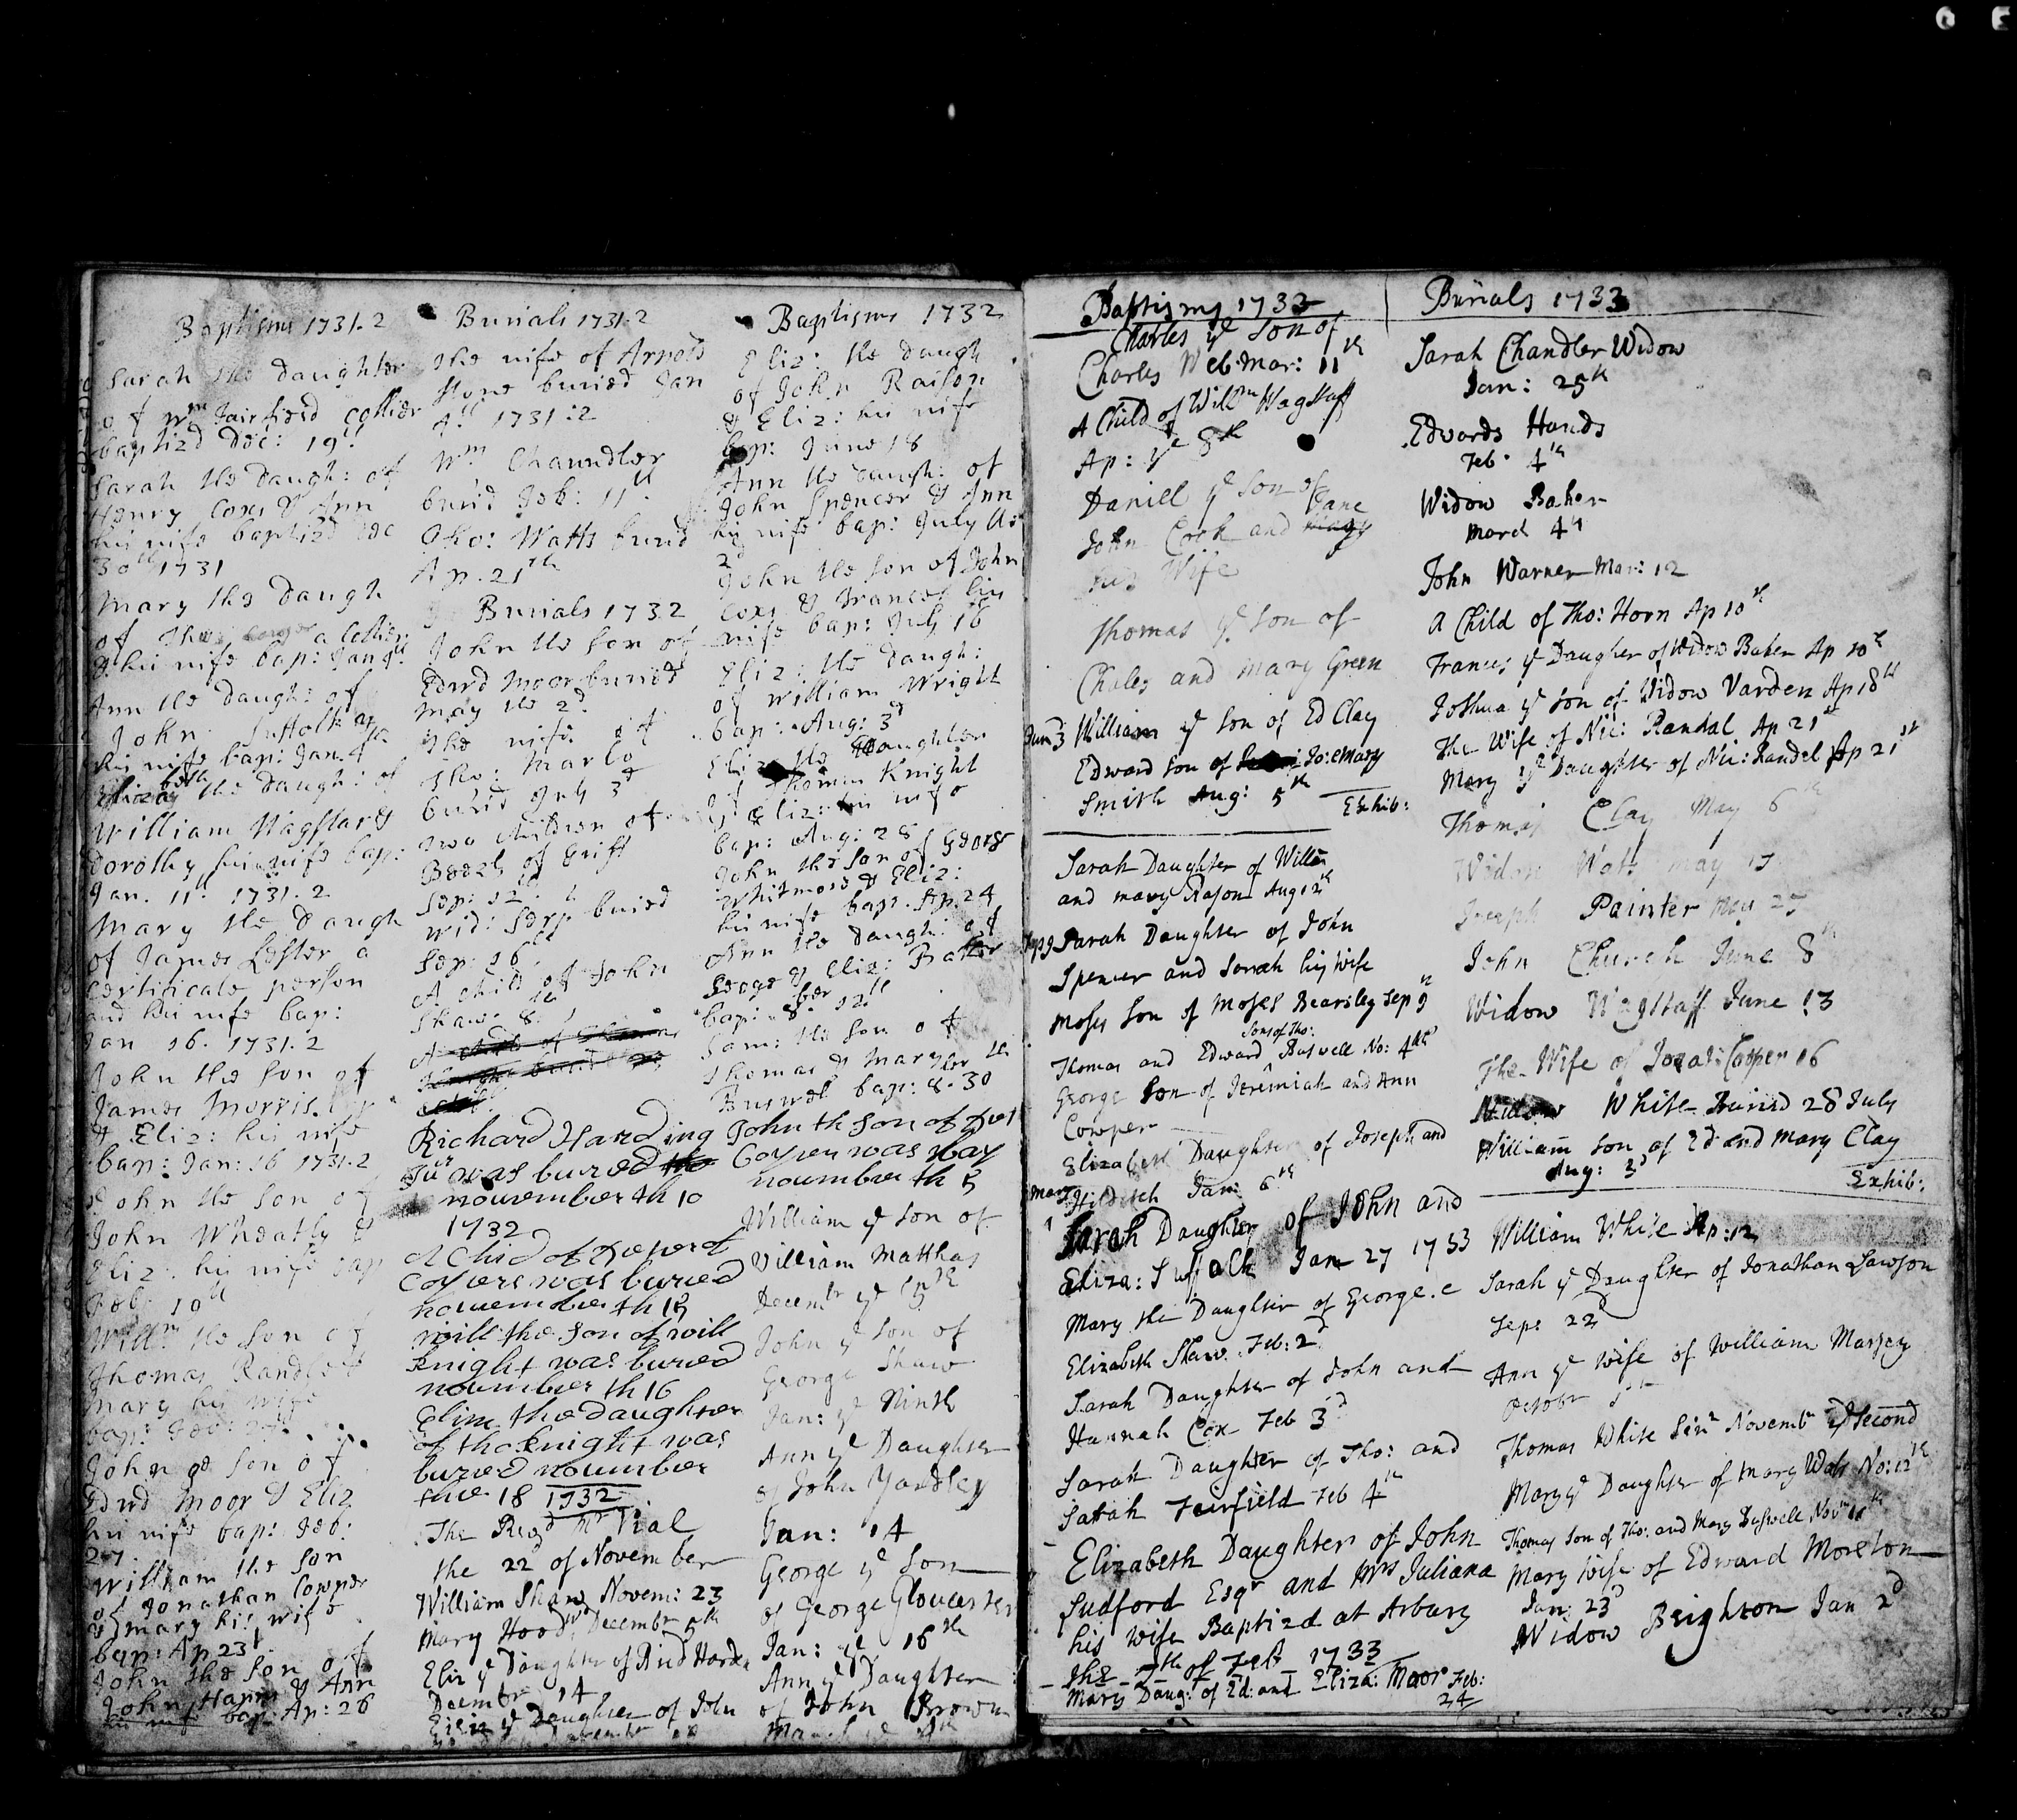 Baptisms 1731.2
Sarah the Daughter
of Wm Fairfierd Collier
baptizd Dec: 19th
Sarah the Daugh: of
Henry Coxs & Ann
his wife baptizd Dec
30th 1731
Mary the Daugh
of Tho: a Collier
& his wife bap: Jan 9th
Ann the Daugh: of
John Suffolk &
his wife bap: Jan. 4th
Elizabeth the Daugh: of
William Wagstar &
Dorothy his wife bap:
Jan. 11th 1731.2
Mary the Daugh
of James Lester a
Certificate person
and his wife bap:
Jan 16. 1731.2
John the Son of
James Morris
& Eliz: his wife
bap: Jan: 16 1731.2
John the Son of
John Wheatly &
Eliz: his wife bap
Feb: 10th
Willm the Son of
Thomas Randle &
Mary his wife
bap: Feb:
John ye Son of
Edwd Moor & Eliz
his wife bap: Feb:
27.
William the Son
of Jonathan Cowper
& Mary his wife
bap: Ap 23
John the Son of
John & Ann
his wife bap: Ap: 26
Burials 1731.2
The wife of Arnold
Stone buried Jan
4th 1731:2
Wm Chaundler
buri'd Feb: 11th
Tho: Watts buried
Ap. 21th
Burials 1732
John the Son of
Edwd Moor buried
May the 2d
The wife of
Tho: Marlo
buri'd July 3d
Two Children of
Beezly of Griff
Sep: 12th
Wid: buried
Sep: 16th
A child of John
Shaw. 8.
Richard Harding
Jur was buried the
november th 10
1732
A Chid of
Copers was buried
november th 15
will the Son of will
Knight was buried
noumber th 16
Elim the Daughter
of tho Knight was
buried noumber
the 18 1732
The Revd Mr Vial
the 22 of November
William Shaw Novem: 23
Mary Hood Decembr 5th
Eliz ye Daughter of Rich Hardn
Decembr 14
Eliz ye Daughter of John
Baptisms 1732
Eliz: the Daugh
of John Raison
& Eliz: his wife
bap: June 18
Ann the Daugh: of
John Spencer & Ann
his wife bap: July the
2d
John the Son of John
Coxs & Frances his
wife bap: July 16
Eliz: the Daugh:
of William Wright
bap: Aug: 3d
Eliz: the Daughter
of Thomas Knight
& Eliz: his wife
bap: Aug: 28
John the Son of George
Whitmore & Eliz:
his wife bap. Ap. 24
Ann the Daugh: of
George & Eliz:
bap: 8ber 12th
Sam: the Son of
Thomas & Mary
Buswel bap: 8ber 30th
John th Son of
Coper was bap
noumber th 5
William ye Son of
William Matthas
Decembr ye
John ye Son of
George Shaw
Jan: ye Ninth
Ann ye Daughter
of John Yardley
Jan: 14
George ye Son
of George Gloucester
Jan: ye 16th
Ann ye Daughter
of John Brown
March ye 4th
Baptisms 1733
Charles ye Son of
Charles Web Mar: 11th
A Child of Willm Wagstaff
Ap: ye 8th
Daniel ye Son of
John Cook and Mary Jane
his Wife
Thomas ye Son of
Chales and Mary Green
Jun 3 William ye Son of Ed Clay
Edward Son of Jo: & Mary
Smith Aug: 5th
Exhib:
Sarah Daughter of Willm
and mary Rason Aug 12th
Sep 9 Sarah Daughter of John
Spencer and Sarah his Wife
Moses Son of Moses Bearsley Sep 9th
Thomas and Edward Sons of Tho: Buswell No: 4th
George Son of Jeremiah and Ann
Cowper
Elizabeth Daughter of Joseph and
Mary Jan: 6th
Sarah Daughter of John and
Eliza: Suffolk Jan 27 1733
Mary the Daughter of George. e
Elizabeth Shaw. Feb: 2d
Sarah Daughter of John and
Hannah Cox Feb 3d
Sarah Daughter of Tho: and
Sarah Fairfield Feb 4th
Elizabeth Daughter of John
Ludford Esqr and Mrs Juliana
his Wife Baptizd at Arbury
the 7th of Feb 1733
Mary Daug: of Ed: and Eliza: Moor Feb:
24
Burials 1733
Sarah Chandler Widow
Jan: 25th
Edwards Hands
Feb. 4th
Widow Baker
March 4th
John Warner Mar: 12
A Child of Tho: Horn Ap 10th
Frances ye Daugher of Widow Baker Ap 10th
Joshua ye Son of Widow Varden Ap 18th
The Wife of Nic: Randal Ap 21st
Mary ye Daughter of Nic: Randel Ap 21st
Thomas Clay May 6th
Widow Watts may 17
Joseph Painter May 25
John Church June 8th
Widow Wagstaff June 13
The Wife of Jonat: Cooper 16
Widow White Buried 28 July
William Son of Ed and Mary Clay
Aug: 3d
Exhib:
William White Ap: 12
Sarah ye Daughter of Jonathan Lawson
Sept 22d
Ann ye Wife of William Massey
October
Thomas White Senr Novembr ye Second
Mary ye Daughter of Mary Watts No: 12th
Thomas Son of Tho: and Mary Buswell Novr
Mary Wife of Edward Moreton
Jan: 23d
Widow Beighton Jan 2d